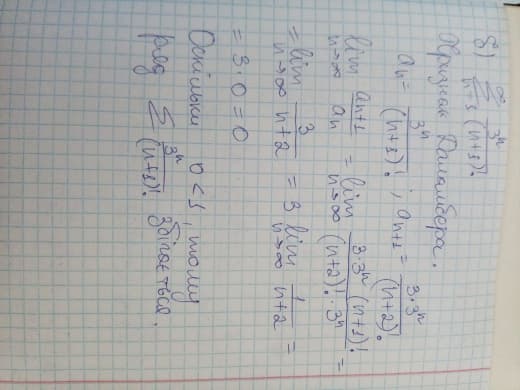 б) ∑_{n=1}^{∞} 3^n/(n+1)!
Признак Даламбера.
a_n = 3^n/(n+1)! ; a_{n+1} = 3·3^n/(n+2)!
lim_{n→∞} a_{n+1}/a_n = lim_{n→∞} 3·3^n (n+1)!/(n+2)!·3^n =
= lim_{n→∞} 3/n+2 = 3 lim_{n→∞} 1/n+2 =
= 3·0 = 0
Оскільки 0<1, тому
ряд ∑ 3^n/(n+1)! збігається.